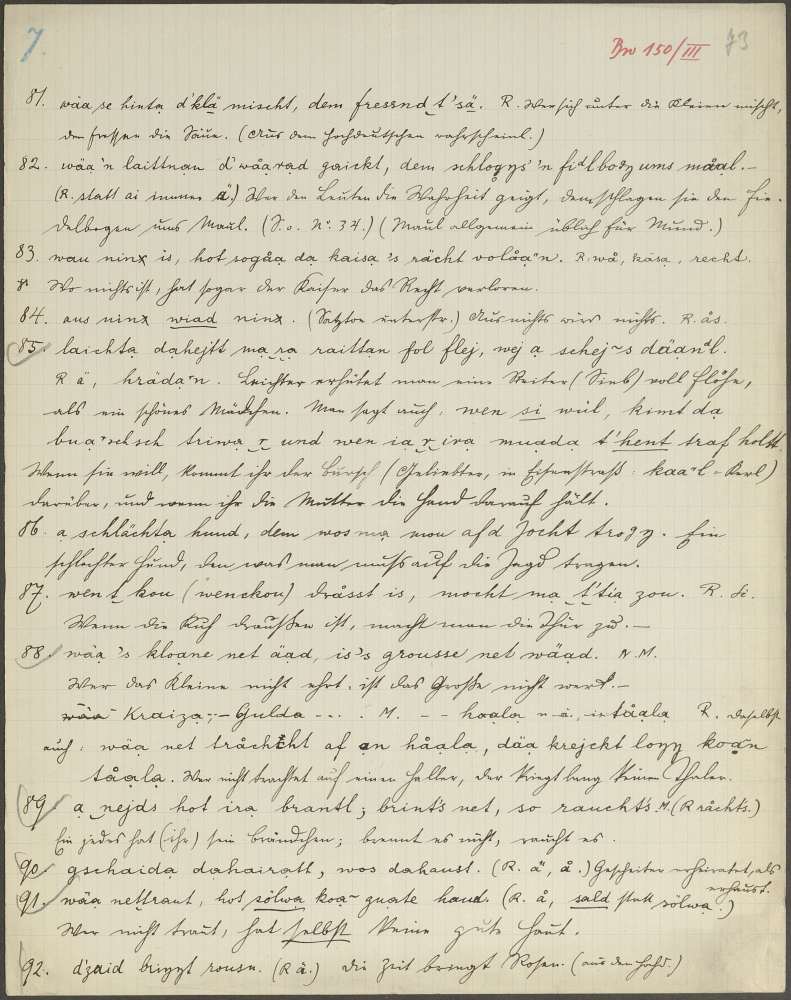 7.
Bw 150/III 73
81. wäa se hintạ d'klä mischt, dem fressnd t's'ä. R. Wer sich unter die Kleien mischt,
den fressen die Säue. (Aus dem Hochdeutschen wahrscheinl.)
82. wäa 'n laittnan d' wåarad gaickt, dem schlogys 'n fidlbogy ums måal. –
(R. statt ai immer ä.) Wer den Leuten die Wahrheit geigt, dem schlagen sie den Fie-
delbogen ums Maul. (S. o. No. 34.) (Maul allgemein üblich für Mund.)
83. wau ninx is, hot sogåa dạ kaisạ 's rächt volåa'n. R. wå, käsạ, recht.
Wo nichts ist, hat sogar der Kaiser das Recht verloren.
84. aus ninx wiad ninx. (Satzton unterstr.) Aus nichts wird nichts. R. ås.
85. laichtạ dạhejtt mạ rạ raittan fol flej, wej ạ schej~s däan'l.
R ä, hrädạ'n. Leichter erhütet man eine Reiter (Sieb) voll Flöhe,
als ein schönes Mädchen. Man sagt auch: wen si wül, kimt dạ
buạ'schsch triwạ r und wen iạ r irạ muadạ t'hent traf holtt.
Wenn sie will, kommt ihr der Bursch (Geliebter, in Eisenstraß: kaa'l - Kerl)
darüber, und wenn ihr die Mutter die Hand darauf hält.
86. ạ schlächtạ hund, dem wos mạ mou af d Jocht trogy. Ein
schlechter Hund, den was man muß auf die Jagd tragen.
87. wen t kou (wenckou) dråsst is, mocht mạ t'tiạ zou. R. di
Wenn die Kuh draußen ist, macht man die Thür zu. –
88. wäa 's kloạne net äad, is's grousse net wäad. M.
Wer das Kleine nicht ehrt, ist das Große nicht wert. –
Kraizạ – Gulda – . . M. – – hoala tåala R. daselbst
auch: wäa net tråchtt af an håala, däa krejckt loyy koa'n
tåala. Wer nicht trachtet auf einen Haller, der kriegt lang keinen Thaler.
89. ạ nejds hot irạ brantl; brint's net, so raucht's. M. (R råcht's.)
Ein jedes hat (ihr) sein Brändchen; brennt es nicht, raucht es.
90. gschaidạ dahairatt, wos dahaust. (R. ä, å.) Gescheiter erheiratet, als
erhaust.
91. wäa nettraut, hot sölwạ koạ~ guate haud. (R. å, sald statt sölwạ.)
Wer nicht traut, hat selbst keine gute Haut.
92. d'zaid briyyt rousn. (R ä.) Die Zeit bringt Rosen. (aus dem Hochd.)